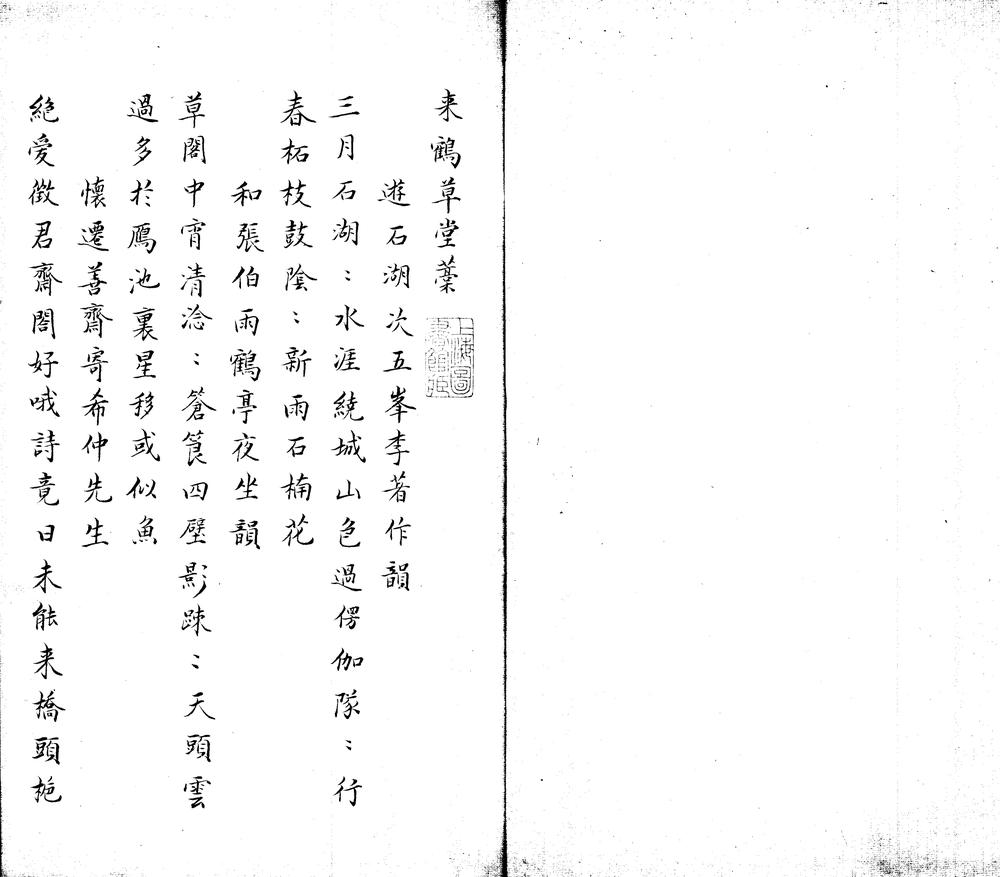 来鶴草堂藁
上海圖書館藏
遊石湖次五峯李著作韻
三月石湖〻水涯繞城山色過㑮伽隊〻行
春柘枝鼓陰〻新雨石楠花
和張伯雨鶴亭夜坐韻
草閣中宵清淰〻䈐筤四壁影踈〻天頭雲
過多於鴈池裏星移或似魚
懷遷善齋寄希仲先生
絶愛徵君齋閤好哦詩竟日未能来橋頭